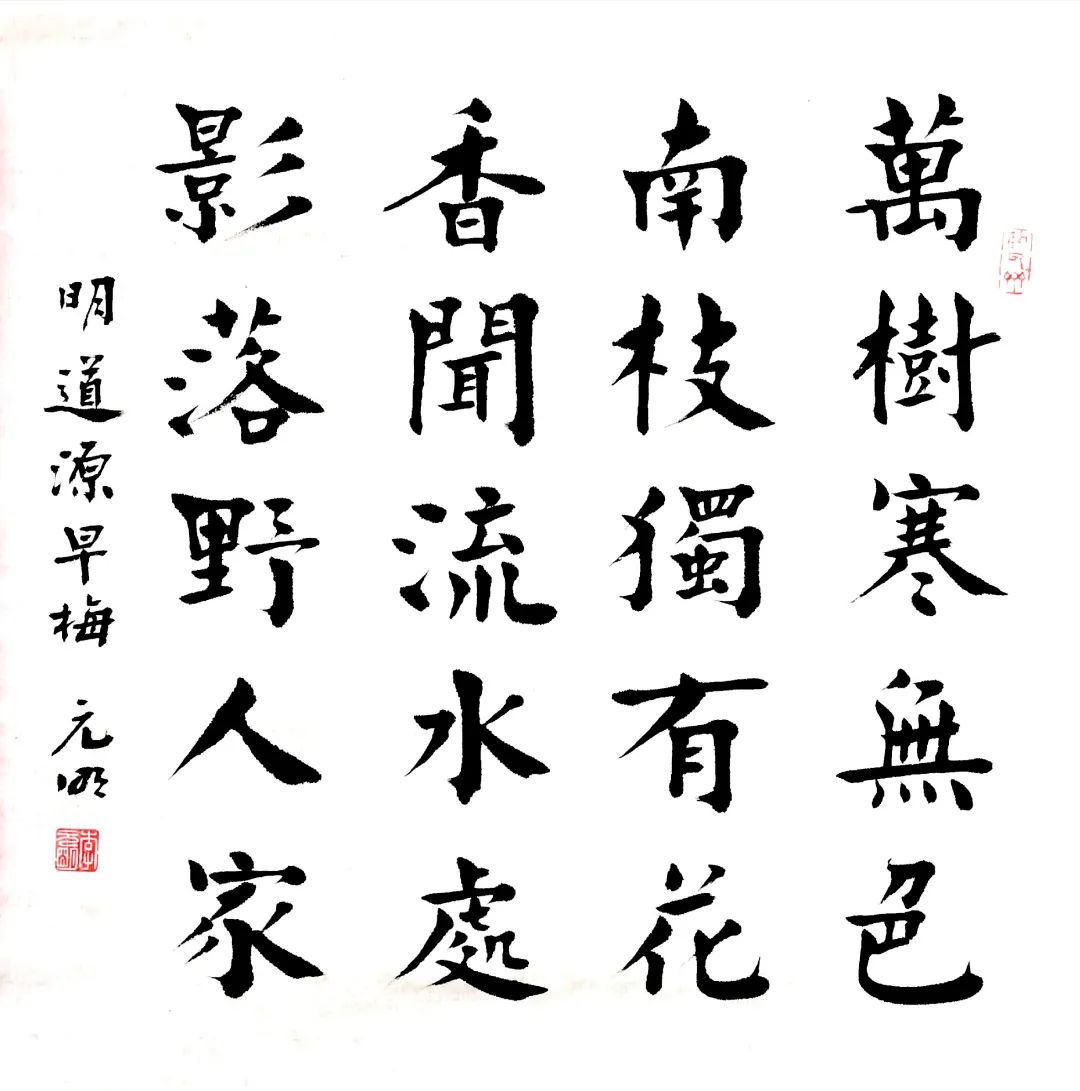 萬樹寒無色
南枝獨有花
香聞流水處
影落野人家
明道源早梅 元明